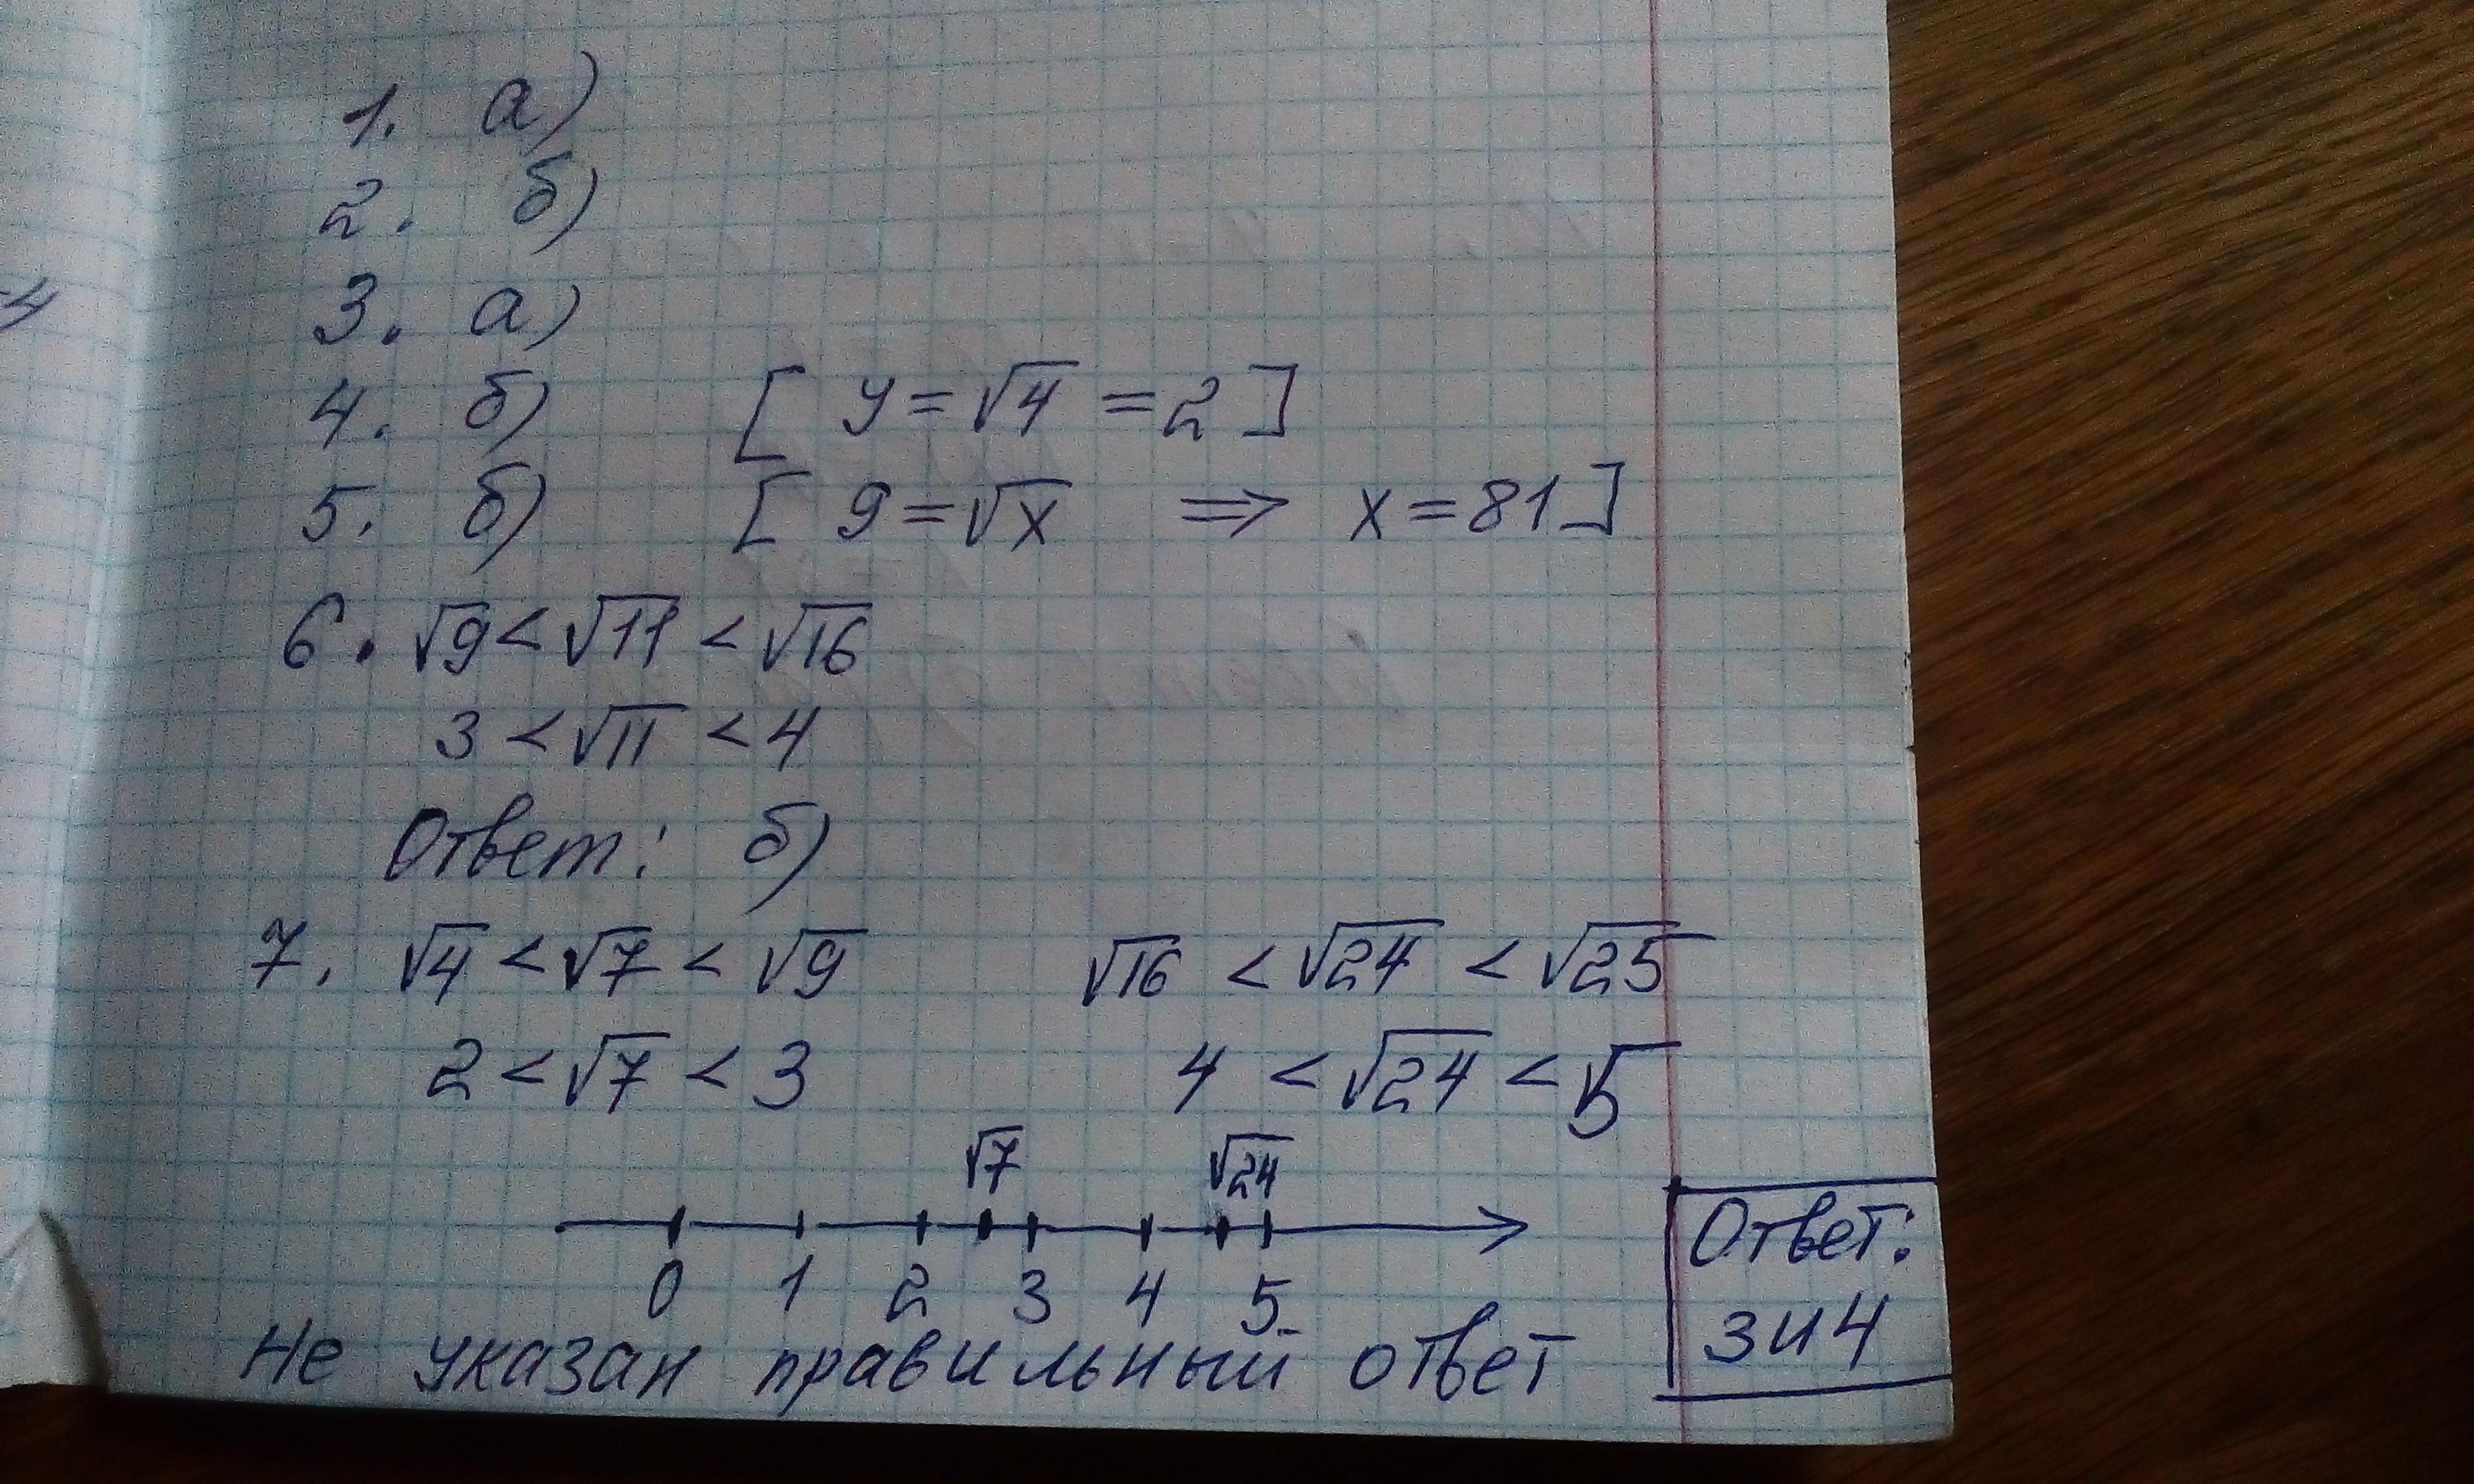 1. а)
2. б)
3. а)
4. б) [ y = √4 = 2 ]
5. б) [ 9 = √x ⇒ x = 81 ]
6. √9 < √11 < √16
3 < √11 < 4
Ответ: б)
7. √4 < √7 < √9 √16 < √24 < √25
2 < √7 < 3 4 < √24 < √5
√7 √24
0 1 2 3 4 5
Не указан правильный ответ
Ответ:
3 и 4